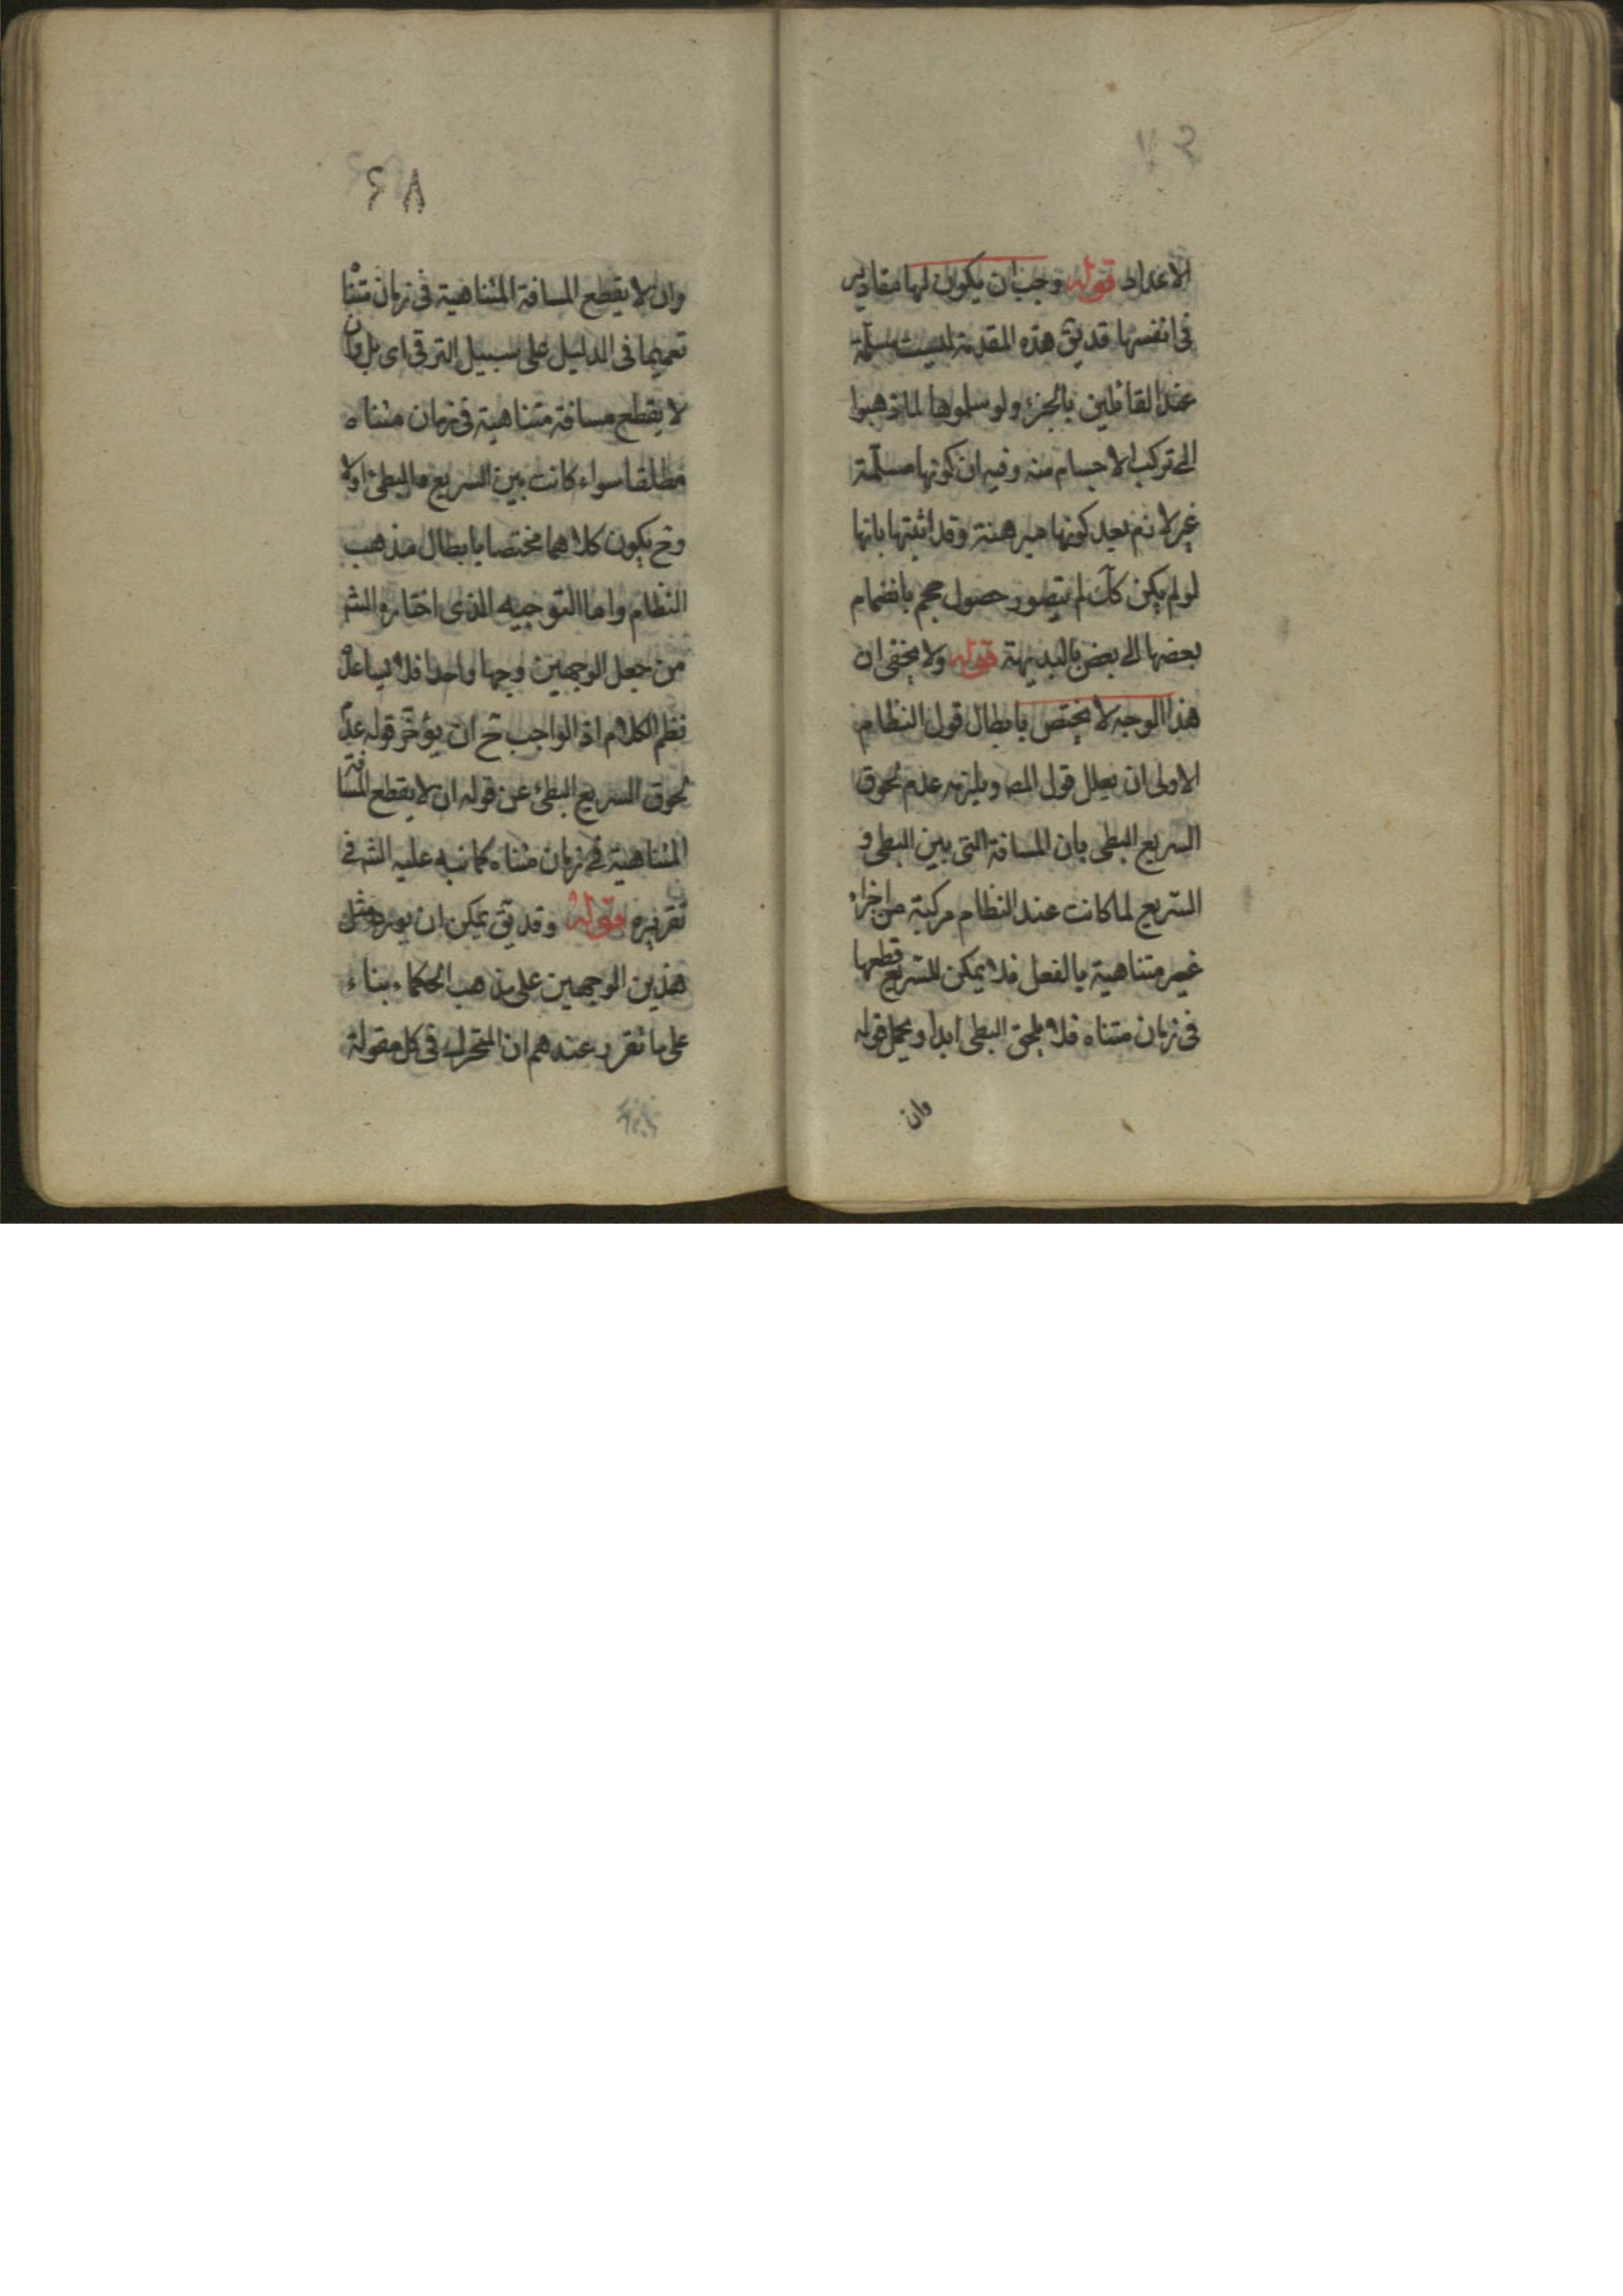 الاعداد قوله وجب ان يكون لها مقادير
فى انفسها قد يقٓ هذه المقدمة ليست مسلّمة
عند القائلين بالجزء ولو سلموها لما ذهبوا
الى تركب الاجسام منه وفيه ان كونها مسلّمة
غير لازم بعد كونها مبرهنة وقد اثبتها بانها
لو لم يكن كك لم يتصور حصول حجم بانضمام
بعضها الى بعض بالبديهة قوله ولا يخفى ان
هذا الوجه لا يختص بابطال قول النظام
الاولى ان يعلل قول المصـ ويلزمه عدم لحوق
السريع البطى بان المسافة التى بين البطى و
السّريع لما كانت عند النظام مركبة من اجزاء
غير متناهية بالفعل فلا يمكن للسّريع قطعها
فى زمان متناه فلا يلحق البطى ابدا ويحمل قوله
وان
٤٨
وان لا يقطع المسافة المتناهية فى زمان متناه
تعميما فى الدليل على سبيل الترقى اى بل وان
لا يقطع مسافة متناهية فى زمان متناه
مطلقا سواء كانت بين السريع والبطئ اولا
وح يكون كلاهما مختصا بابطال مذهب
النظام واما التوجيه الذى اختاره الشـ
من جعل الوجهين وجها واحدا فلا يساعده
نظم الكلام اذ الواجب ح ان يؤخّر قوله عدم
لحوق السريع البطئ عن قوله ان لا يقطع المسافة
المتناهية فى زمان متناه كما نبه عليه الشـ فى
تقريره قوله وقد يقٓ يمكن ان يورد مثل
هذين الوجهين على مذهب الحكماء بناء
على ما تقرر عندهم ان المتحرك فى كل مقولة